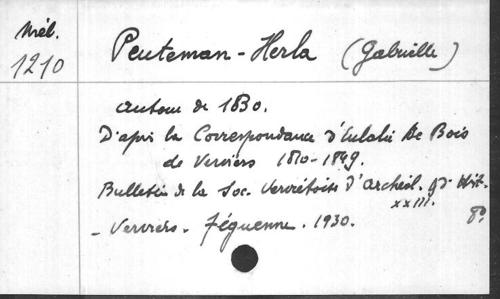 Mél.
1210
Peuteman-Herla (Gabrielle)
Autour de 1830.
D'après la Correspondance d'Eulalie De Bois
de Verviers 1810-1849.
Bulletin de la Soc. Verviétoise d'Archéol. & d'Hist.
XXIII.
- Verviers. Féguenne. 1930. 8°.